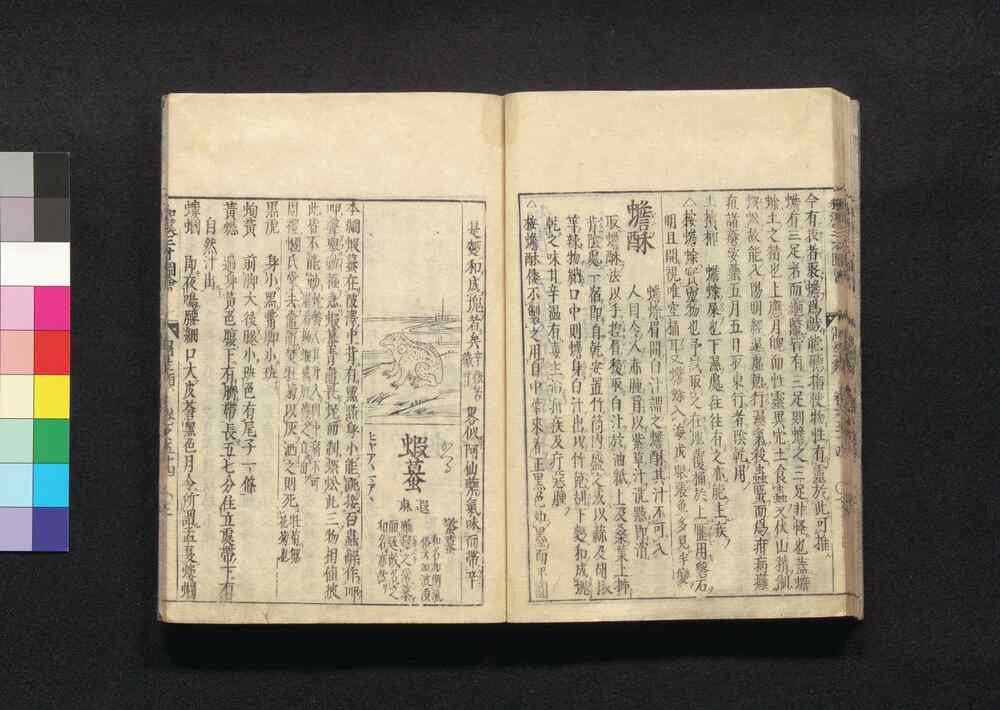 今有技者聚蟾爲戲能聽指使物性有靈於此可推
蟾有三足者而龜鼈皆有三足則蟾之三足非怪也蓋蟾
蜍土之精也上應月魄而性靈異穴土食蟲又伏山精制
蜈蚣故能入陽明經退虛熱行濕氣殺蟲䘌而爲疳病癰
疽諸瘡要藥五月五日取東行者陰乾用
土檳榔 蟾蜍屎也下濕處往往有之亦能主疾
△按蟾蜍實靈物也予試取之在地覆桶於上壓用磐石
明旦開視唯空桶耳又蟾蜍入海成眼張魚多見半變
蟾酥
蟾蜍眉間白汁謂之蟾酥其汁不可入
人目令人赤腫盲以紫草汁洗點即消
取蟾酥法以手捏眉稜取白汁於油紙上及桑葉上揷
背陰處一宿即自乾安置竹筒内盛之或以蒜及胡椒
等辣物納口中則蟾身白汁出以竹篦刮下麪和成塊
乾之味甘辛温有毒主治疳疾及疔惡腫
△按蟾酥倭不製之用自中華來者正黑色如墨而平圓
是麪和成塊者矣辛微苦微甘畧似阿仙藥氣味而帶辛
かへる
蝦蟇
遐麻
本綱蝦蟇在陂澤中背有黑點身小能跳接百蟲解作呷
呷聲舉動極急蝦蟇青鼃畏蛇而制蜈蚣此三物相値彼
此皆不能動
周禮蟈氏掌去鼃黽焚牡菊以灰洒之則死 牡菊無花菊也
黑虎 身小黑嘴脚小斑
蚼黄 前脚大後腿小班色有尾子一條
黄䵷 遍身黄色腹下有臍帶長五七分住立處帶下有
自然汁出
螻蟈 即夜鳴腰細口大皮蒼黑色月令所謂孟夏螻蟈
和漢三才圖會 濕生類 卷之五十四